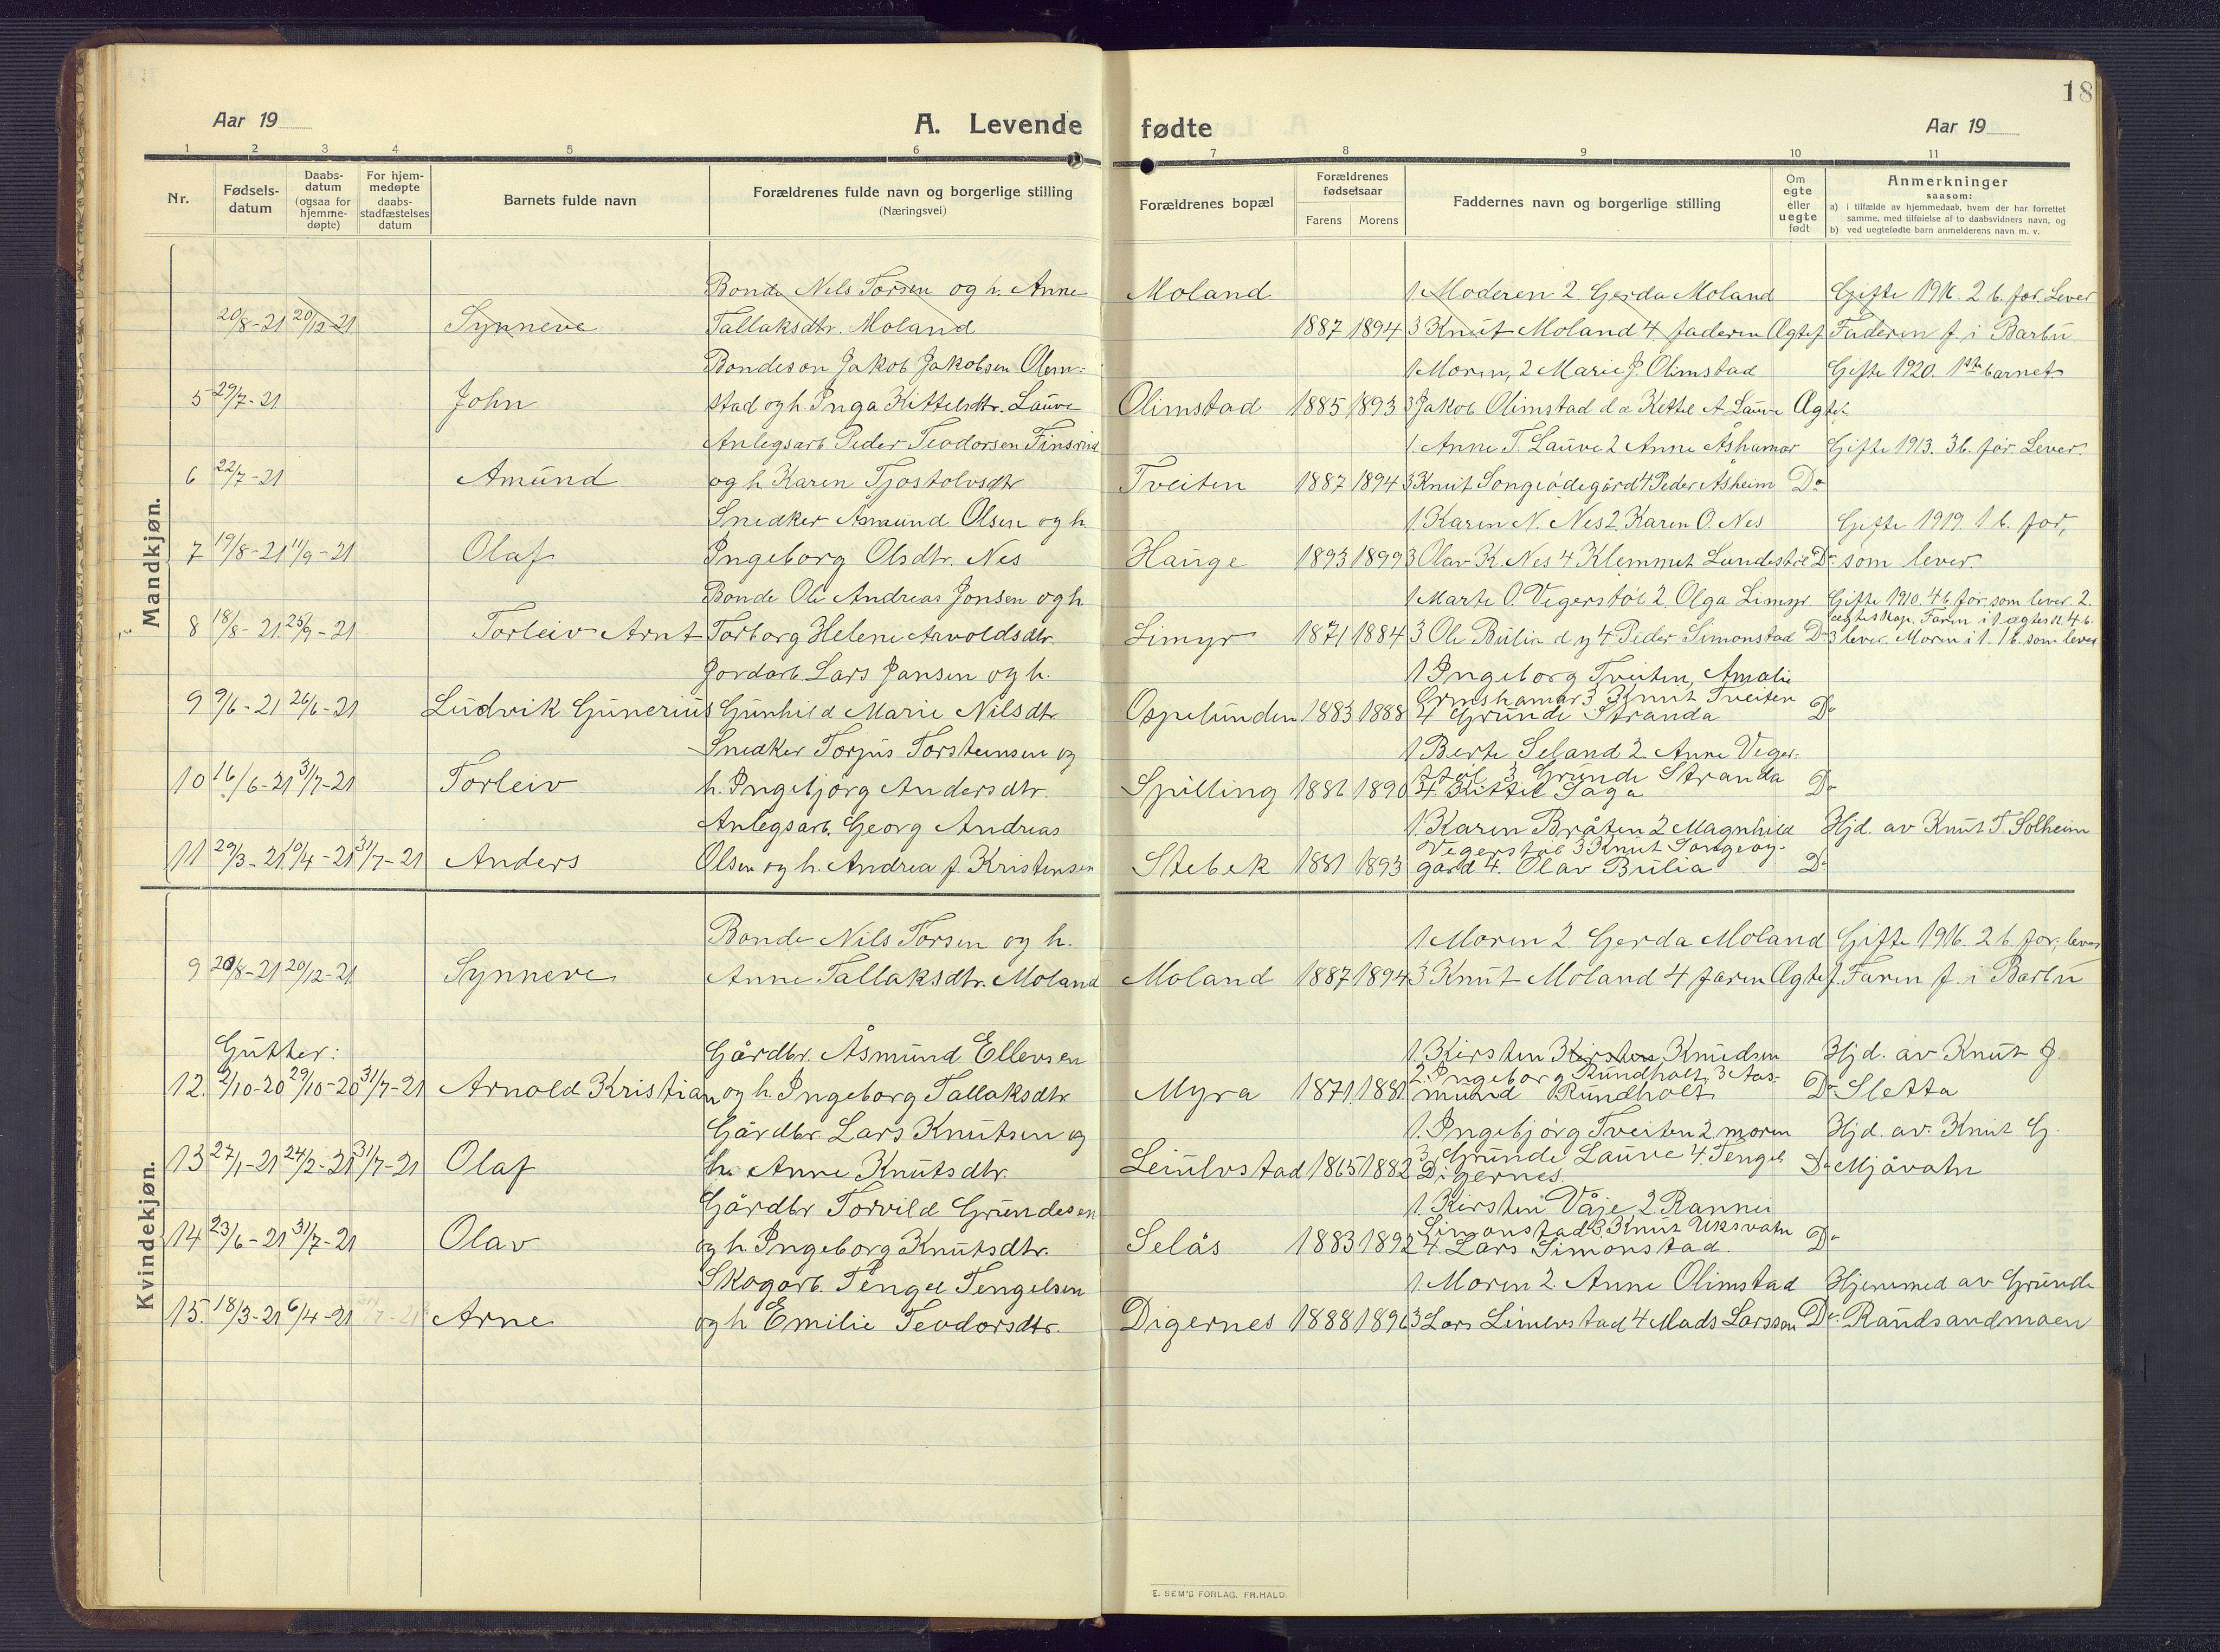 18
Aar 19
A. Levende fødte
Aar 19
1 2 3 4 5 6 7 8 9 10 11
Nr.
Fødsels-
datum
Daabs-
datum
(ogsaa for
hjemme-
døpte)
For hjem-
medøpte
daabs-
stadfæstelses
datum
Barnets fulde navn
Forældrenes fulde navn og borgerlige stilling
(Næringsvei)
Forældrenes bopæl
Forældrenes
fødselsaar
Farens Morens
Faddernes navn og borgerlige stilling
Om
egte
eller
uegte
født
Anmerkninger
saasom:
a) i tilfælde av hjemmedaab, hvem der har forrettet
samme, med tilføielse af to daabsvidners navn, og
b) ved uegtefødte barn anmelderens navn m. v.
Mandkjøn.
Bonde Nils Torsen og h. Anne Moland 1 Moderen 2 Gerda Moland Gifte 1916. 2 b. før. Lever
20/8-21 20/12-21 Synneve Tallaksdtr. Moland 1887 1894 3 Knut Moland 4 faderen Ægtef. Faderen f. i Barbu
Bondeson Jakob Jakobsen Olim- 1 Moren, 2 Marie J. Olimstad Gifte 1920. 1ste barnet
5 29/7-21 John stad og h. Inga Kittelsdtr. Lauve Olimstad 1885 1893 3 Jakob Olimstad d æ Kittel A Lauve Ægtef.
Anlegsarb Peder Teodorsen 1 Anne T. Lauve 2 Anne Åshamar Gifte 1913. 3b. før. Lever.
6 22/7-21 Amund og h Karen Tjostolvsdtr Tveiten 1887 1894 3 Knut Songeødegård 4 Peder Åsheim Do
Snedker Asmund Olsen og h 1 Karen N. Nes 2 Karen O. Nes Gifte 1919. 1 b. før,
7 19/8-21 11/9-21 Olaf Ingeborg Olsdtr. Nes Hauge 1893 1899 3 Olav K. Nes 4 Klemmet Lundestøl Do som lever.
Bonde Ole Andreas Jonsen og h 1 Marte O. Vegerstøl 2 Olga Limyr Gifte 1910. 4 b. før som lever. 2.
ægteskap. Faren i 1. ægtesk. 4 b.
8 18/8-21 25/9-21 Torleiv Arnt Torborg Helene Arvoldsdtr. Limyr 1871 1884 3 Ole Bulia d y 4 Peder Simonstad Do 3 lever. Moren i 1. 1 b. som lever
Jordarb. Lars Jansen og h. 1 Ingeborg Tveiten, Amalie
9 9/6-21 26/6-21 Ludvik Gunerius Gunhild Marie Nilsdtr Ospelunden 1883 1888 Ormshamar 3 Knut Tveiten
4 Grunde Stranda Do
Snedker Torjus Torsteinsen og 1 Berte Seland 2 Anne Veger-
støl 3 Grunde Stranda
10 16/6-21 31/7-21 Torleiv h. Ingebjørg Andersdtr. Spilling 1886 1890 4 Kittel Saga Do
Anlegsarb. Georg Andreas 1. Karen Bråten 2 Magnhild Hjd. av Knut T. Solheim
Vegerstøl 3 Knut Songeøy-
11 29/3-21 10/4-21 31/7-21 Anders Olsen og h. Andrea f. Kristensen Stebek 1881 1893 gård 4. Olav Bulia Do
Kvindekjøn.
Bonde Nils Torsen og h. 1 Moren 2 Gerda Moland Gifte 1916. 2 b. før, lever
9 20/8-21 20/12-21 Synneve Anne Tallaksdtr. Moland Moland 1887 1894 3 Knut Moland 4 faren Ægtef. Faren f. i Barbu
Gutter:
Gårdbr. Åsmund Ellevsen 1. Kirsten Kirsten Knudsen Hjd. av Knut J.
2. Ingeborg Rundholt 3 Aas-
12. 2/10-20 29/10-20 31/7-21 Arnold Kristian og h. Ingeborg Tallaksdtr Myra 1871 1881 mund Rundholt Do Sletta
Gårdbr. Lars Knutsen og 1. Ingebjørg Tveiten 2 moren Hjd. av. Knut G.
3 Grunde Lauve 4. Tengel
13 27/1-21 24/2-21 31/7-21 Olaf h. Anne Knutsdtr. Leiulvstad 1865 1882 Digernes. Do Mjåvatn
Gårdbr Torvild Grundesen 1 Kirsten Våje 2 Rannei
Simonstad 3. Knut Uksvatn
14 23/6-21 31/7-21 Olav og h. Ingeborg Knutsdtr. Selås 1883 1892 4. Lars Simonstad. Do
Skogarb. Tengel Tengelsen 1 Moren 2. Anne Olimstad Hjemmed av Grunde
15. 18/3-21 6/4-21 Arne og h Emilie Teodorsdtr. Digernes 1888 1896 3 Lars 4 Mads Larsson Do Raudsandmoen
E. SEM'S FORLAG. FR.HALD.